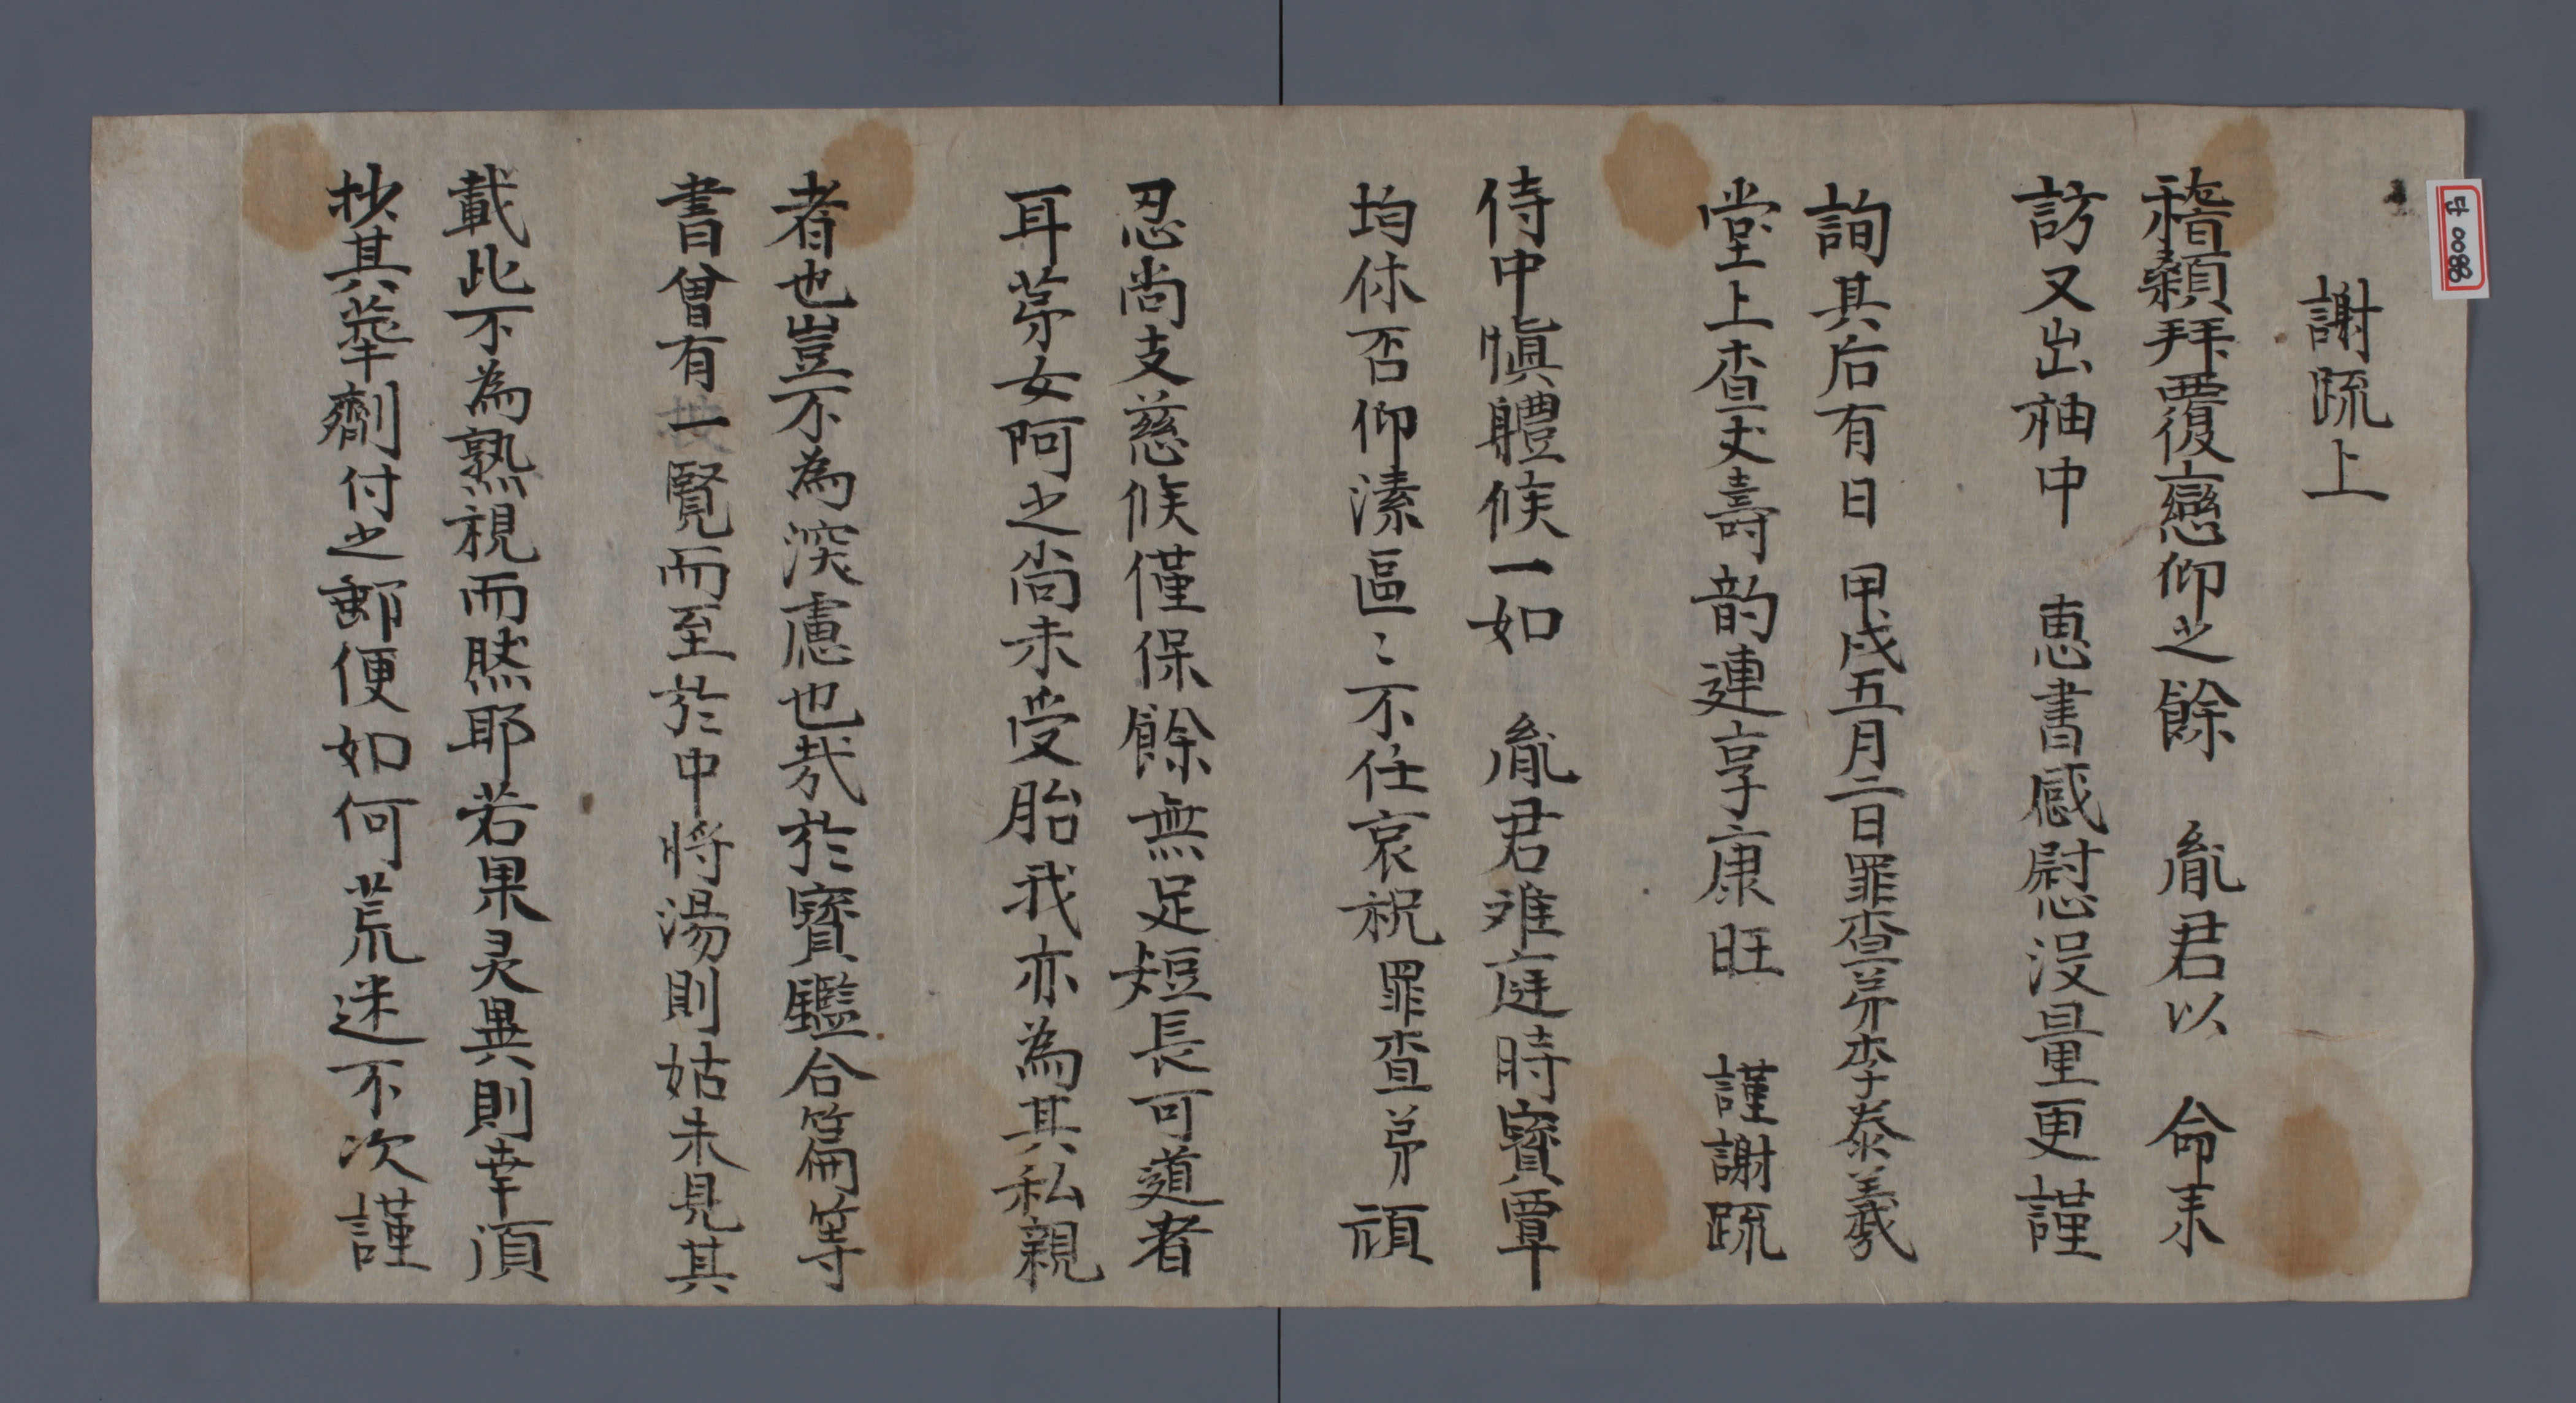 단 0088
謝疏上
稽顙拜覆戀仰之餘 胤君以 命來
訪又出袖中 惠書感慰沒量更謹
詢其后有日 甲戌五月二日罪査弟李泰羲
堂上査丈壽韵連享康旺 謹謝疏
侍中愼軆候一如 胤君难庭時寶覃
均休否仰溸區〻不任哀祝罪査弟頑
忍尙支慈候僅保餘無足短長可道者
耳苐女阿之尙未受胎我亦為其私親
者也豈不為深慮也哉於寶鑑合篇等
書曾有一覽而至於中將湯則姑未見其
載此不為熟視而然耶若果灵異則幸須
抄其藥劑付之郵便如何荒迷不次謹